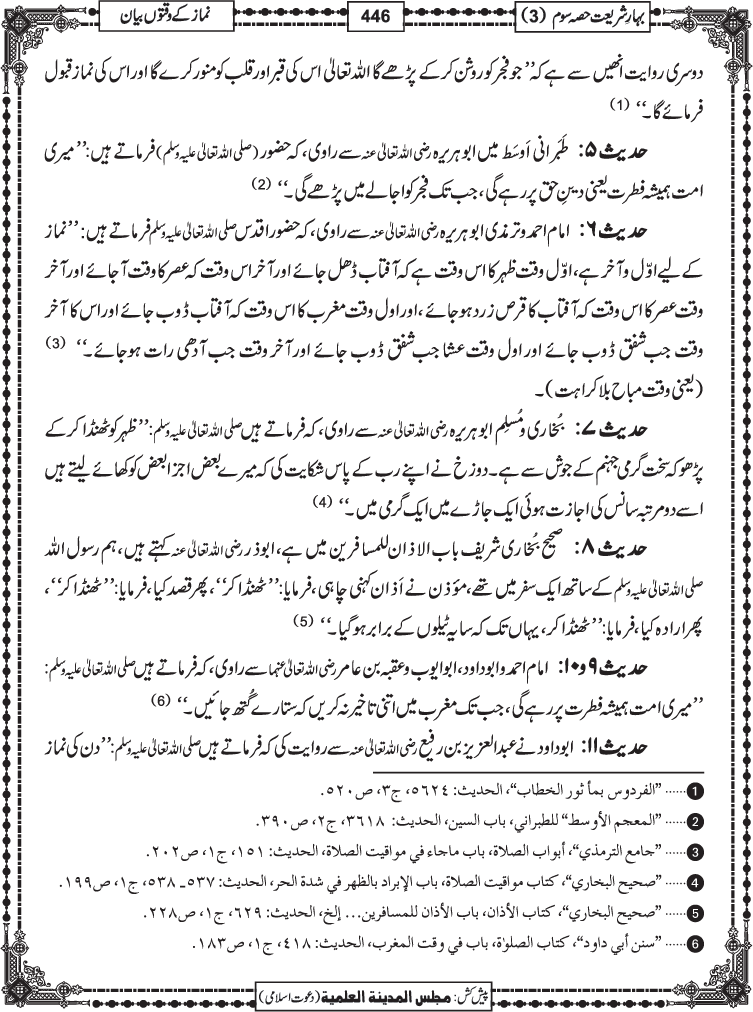 بہارِ شریعت حصہ سوم (3)
446
نماز کے وقتوں بیان
دوسری روایت انھیں سے ہے کہ ’’جو فجر کو روشن کر کے پڑھے گا اللہ تعالیٰ اس کی قبر اور قلب کو منور کرے گا اور اس کی نماز قبول
فرمائے گا۔‘‘ (1)
حدیث ۵: طَبرانی اَوسَط میں ابو ہریرہ رضی اللہ تعالیٰ عنہ سے راوی، کہ حضور (صلی اللہ تعالیٰ علیہ وسلم) فرماتے ہیں: ’’میری
امت ہمیشہ فطرت یعنی دینِ حق پر رہے گی، جب تک فجر کو اجالے میں پڑھے گی۔‘‘ (2)
حدیث ۶: امام احمد و ترمذی ابو ہریرہ رضی اللہ تعالیٰ عنہ سے راوی، کہ حضور اقدس صلی اللہ تعالیٰ علیہ وسلم فرماتے ہیں: ’’نماز
کے لیے اوّل و آخر ہے، اوّل وقت ظہر کا اس وقت ہے کہ آفتاب ڈھل جائے اور آخر اس وقت کہ عصر کا وقت آجائے اور آخر
وقت عصر کا اس وقت کہ آفتاب کا قرص زرد ہو جائے، اور اول وقت مغرب کا اس وقت کہ آفتاب ڈوب جائے اور اس کا آخر
وقت جب شفق ڈوب جائے اور اول وقت عشا جب شفق ڈوب جائے اور آخر وقت جب آدھی رات ہو جائے۔‘‘ (3)
(یعنی وقت مباح بلا کراہت)۔
حدیث ۷: بُخاری و مُسلِم ابو ہریرہ رضی اللہ تعالیٰ عنہ سے راوی، کہ فرماتے ہیں صلی اللہ تعالیٰ علیہ وسلم: ’’ظہر کو ٹھنڈا کر کے
پڑھو کہ سخت گرمی جہنم کے جوش سے ہے۔ دوزخ نے اپنے رب کے پاس شکایت کی کہ میرے بعض اجزا بعض کو کھائے لیتے ہیں
اسے دو مرتبہ سانس کی اجازت ہوئی ایک جاڑے میں ایک گرمی میں۔‘‘ (4)
حدیث ۸: صحیح بُخاری شریف باب الاذان للمسافرین میں ہے، ابوذر رضی اللہ تعالیٰ عنہ کہتے ہیں، ہم رسول اللہ
صلی اللہ تعالیٰ علیہ وسلم کے ساتھ ایک سفر میں تھے، مؤذن نے اَذان کہنی چاہی، فرمایا: ’’ٹھنڈا کر‘‘، پھر قصد کیا، فرمایا: ’’ٹھنڈا کر‘‘،
پھر ارادہ کیا، فرمایا: ’’ٹھنڈا کر، یہاں تک کہ سایہ ٹیلوں کے برابر ہو گیا۔‘‘ (5)
حدیث ۹ و ۱۰: امام احمد و ابو داود، ابو ایوب و عقبہ بن عامر رضی اللہ تعالیٰ عنہما سے راوی، کہ فرماتے ہیں صلی اللہ تعالیٰ علیہ وسلم:
’’میری امت ہمیشہ فطرت پر رہے گی، جب تک مغرب میں اتنی تاخیر نہ کریں کہ ستارے گُتھ جائیں۔‘‘ (6)
حدیث ۱۱: ابو داود نے عبدالعزیز بن رفیع رضی اللہ تعالیٰ عنہ سے روایت کی کہ فرماتے ہیں صلی اللہ تعالیٰ علیہ وسلم: ’’دن کی نماز
1 ...... ”الفردوس بمأثور الخطاب“، الحديث: ٥٦٢٤، ج٣، ص٥٢٠.
2 ...... ”المعجم الأوسط“ للطبراني، باب السين، الحديث: ٣٦١٨، ج٢، ص٣٩٠.
3 ...... ”جامع الترمذي“، أبواب الصلاة، باب ماجاء في مواقيت الصلاة، الحديث: ١٥١، ج١، ص٢٠٢.
4 ...... ”صحيح البخاري“، كتاب مواقيت الصلاة، باب الإبراد بالظهر في شدة الحر، الحديث: ٥٣٧ـ ٥٣٨، ج١، ص١٩٩.
5 ...... ”صحيح البخاري“، كتاب الأذان، باب الأذان للمسافرين... إلخ، الحديث: ٦٢٩، ج١، ص٢٢٨.
6 ...... ”سنن أبي داود“، كتاب الصلوٰة، باب في وقت المغرب، الحديث: ٤١٨، ج١، ص١٨٣.
پیش کش: مجلس المدینة العلمیة (دعوت اسلامی)